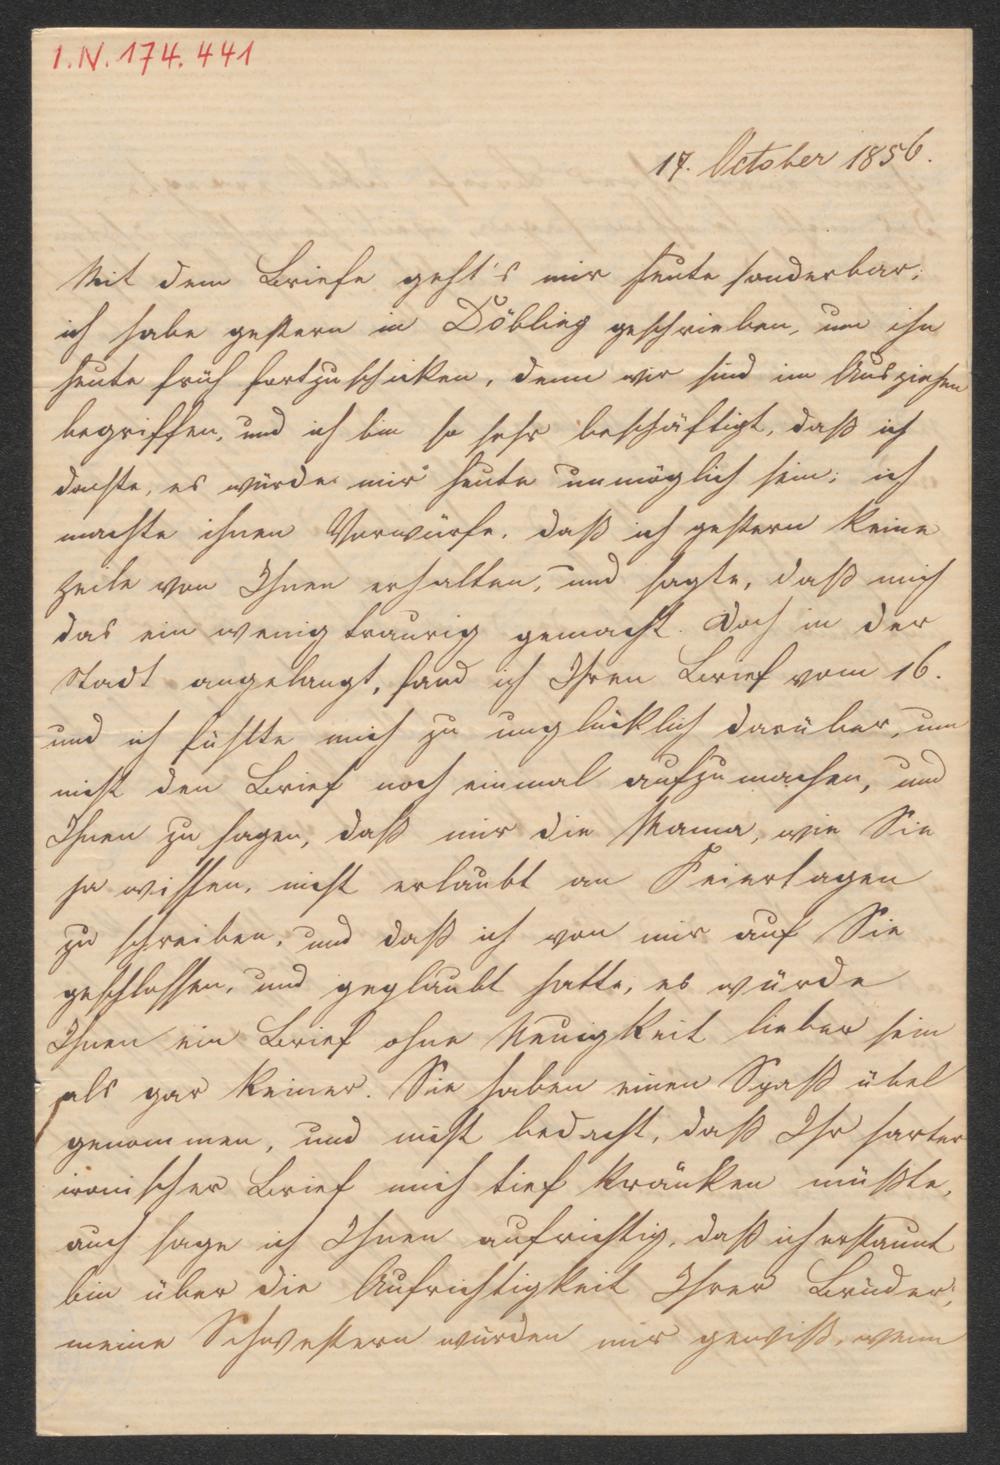 I.N. 174.441
17. October 1856.
Mit dem Briefe geht's mir heute sonderbar;
ich habe gestern in Döbling geschrieben, um ihn
heute früh fortzuschicken, denn wir sind im Ausziehen
begriffen, und ich bin so sehr beschäftigt, daß ich
dachte, es würde mir heute unmöglich sein; ich
machte ihnen Vorwürfe, daß ich gestern keine
Zeile von Ihnen erhalten, und sagte, daß mich
das ein wenig traurig gemacht. Doch in der
Stadt angelangt, fand ich Ihren Brief vom 16.
und ich fühlte mich zu unglücklich darüber, um
nicht den Brief noch einmal aufzumachen, und
Ihnen zu sagen, daß mir die Mama, wie Sie
ja wissen, nicht erlaubt an Feiertagen
zu schreiben, und daß ich von mir auf Sie
geschlossen, und geglaubt hatte, es würde
Ihnen ein Brief ohne Neuigkeit lieber sein
als gar keiner. Sie haben einen Spaß übel
genommen, und nicht bedacht, daß Ihr harter
ironischer Brief mich tief kränken müßte,
auch sage ich Ihnen aufrichtig, daß ich erstaunt
bin über die Aufrichtigkeit Ihrer Brüder,
meine Schwestern würden mir gewiß, wenn